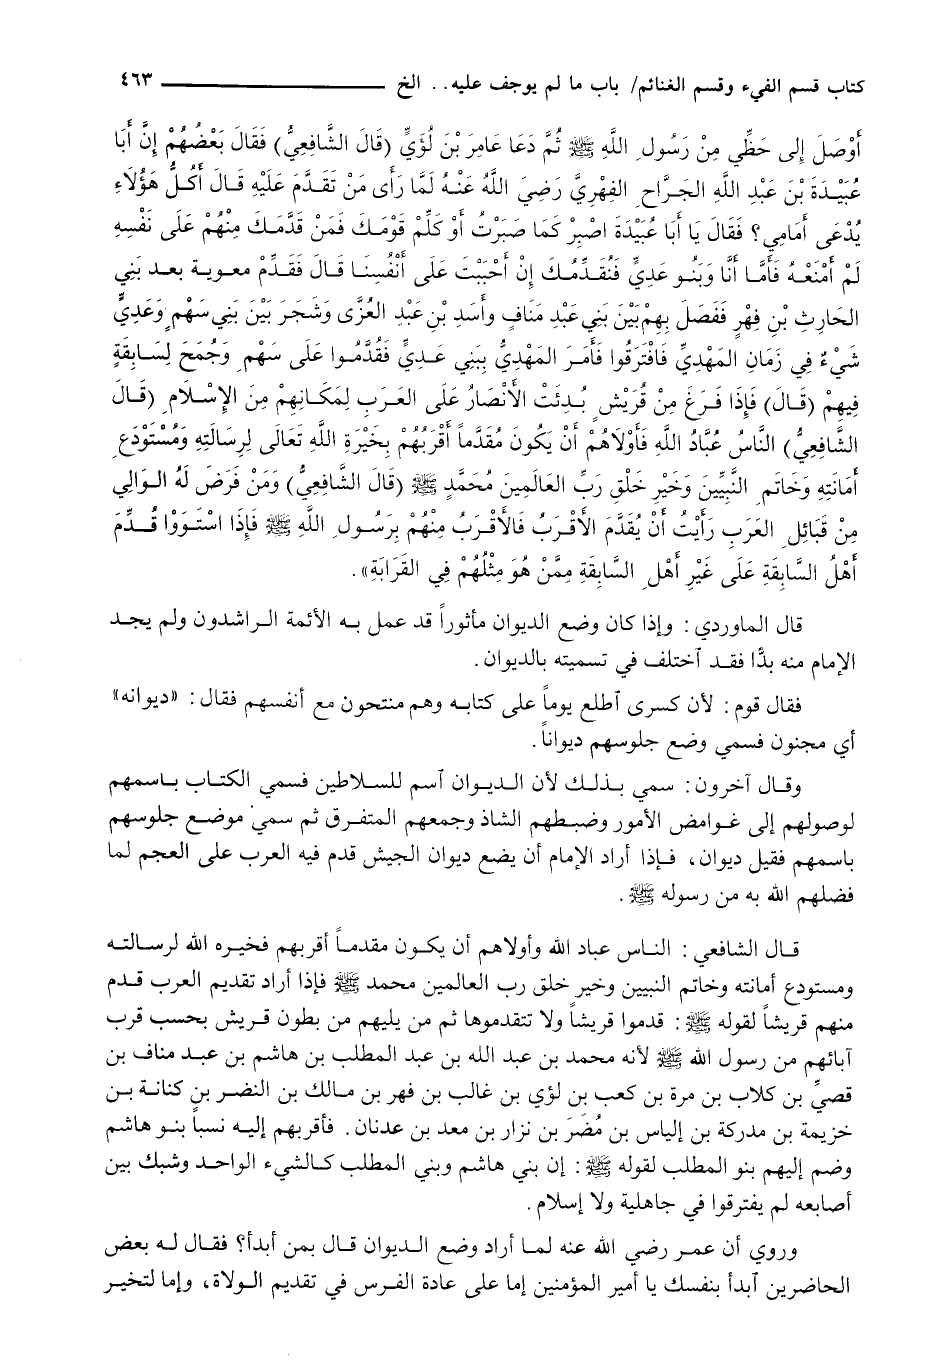 كتاب قسم الفيء وقسم الغنائم/ باب ما لم يوجف عليه.. الخ ٤٦٣
أَوْصَلَ إِلى حَظِّي مِنْ رَسُولِ اللَّهِ ﷺ ثُمَّ دَعَا عَامِرَ بْنَ لُؤَيٍّ (قَالَ الشَّافِعِيُّ) فَقَالَ بَعْضُهُمْ إِنَّ أَبَا
عُبَيْدَةَ بْنَ عَبْدِ اللَّهِ الجَرَّاحِ الفِهْرِيَّ رَضِيَ اللَّهُ عَنْهُ لَمَّا رَأَى مَنْ تَقَدَّمَ عَلَيْهِ قَالَ أَكُلُّ هَؤُلَاءِ
يُدْعَى أَمَامِي؟ فَقَالَ يَا أَبَا عُبَيْدَةَ اصْبِرْ كَمَا صَبَرْتُ أَوْ كَلِّمْ قَوْمَكَ فَمَنْ قَدَّمَكَ مِنْهُمْ عَلَى نَفْسِهِ
لَمْ أَمْنَعْهُ فَأَمَّا أَنَا وَبَنُو عَدِيٍّ فَنُقَدِّمُكَ إِنْ أَحْبَبْتَ عَلَى أَنْفُسِنَا قَالَ فَقَدَّمْ معوية بعد بَنِي
الحَارِثِ بْنِ فِهْرٍ فَفَصَلَ بِهِمْ بَيْنَ بَنِي عَبْدِ مَنَافٍ وأَسَدِ بْنِ عَبْدِ العُزَّى وَشَجَرَ بَيْنَ بَنِي سَهْمٍ وَعَدِيٍّ
شَيْءٌ فِي زَمَانِ المَهْدِيِّ فَافْتَرَقُوا فَأَمَرَ المَهْدِيُّ بِبَنِي عَدِيٍّ فَقُدِّمُوا عَلَى سَهْمٍ وَجُمَحَ لِسَابِقَةٍ
فِيهِمْ (قَالَ) فَإِذَا فَرَغَ مِنْ قُرَيْشٍ بُدِئَتْ الأَنْصَارُ عَلَى العَرَبِ لِمَكَانِهِمْ مِنَ الإِسْلَامِ (قَالَ
الشَّافِعِيُّ) النَّاسُ عُبَّادُ اللَّهِ فَأَوْلَاهُمْ أَنْ يَكُونَ مُقَدَّماً أَقْرَبُهُمْ بِخَيْرَةِ اللَّهِ تَعَالَى لِرِسَالَتِهِ وَمُسْتَوْدَعِ
أَمَانَتِهِ وَخَاتَمِ النَّبِيِّينَ وَخَيْرِ خَلْقِ رَبِّ العَالَمِينَ مُحَمَّدٍ ﷺ (قَالَ الشَّافِعِيُّ) وَمَنْ فَرَضَ لَهُ الوَالِي
مِنْ قَبَائِلِ العَرَبِ رَأَيْتُ أَنْ يُقَدَّمَ الأَقْرَبُ فَالأَقْرَبُ مِنْهُمْ بِرَسُولِ اللَّهِ ﷺ فَإِذَا اسْتَوَوْا قُدِّمَ
أَهْلُ السَّابِقَةِ عَلَى غَيْرِ أَهْلِ السَّابِقَةِ مِمَّنْ هُوَ مِثْلُهُمْ فِي القَرَابَةِ».
قال الماوردي: وإذا كان وضع الديوان مأثوراً قد عمل به الأئمة الراشدون ولم يجد
الإمام منه بدًّا فقد آختلف في تسميته بالديوان.
فقال قوم: لأن كسرى آطلع يوماً على كتابه وهم منتحون مع أنفسهم فقال: «ديوانه»
أي مجنون فسمي وضع جلوسهم ديواناً.
وقال آخرون: سمي بذلك لأن الديوان آسم للسلاطين فسمي الكتاب باسمهم
لوصولهم إلى غوامض الأمور وضبطهم الشاذ وجمعهم المتفرق ثم سمي موضع جلوسهم
باسمهم فقيل ديوان، فإذا أراد الإمام أن يضع ديوان الجيش قدم فيه العرب على العجم لما
فضلهم الله به من رسوله ﷺ.
قال الشافعي: الناس عباد الله وأولاهم أن يكون مقدماً أقربهم فخيره الله لرسالته
ومستودع أمانته وخاتم النبيين وخير خلق رب العالمين محمد ﷺ فإذا أراد تقديم العرب قدم
منهم قريشاً لقوله ﷺ: قدموا قريشاً ولا تتقدموها ثم من يليهم من بطون قريش بحسب قرب
آبائهم من رسول الله ﷺ لأنه محمد بن عبد الله بن عبد المطلب بن هاشم بن عبد مناف بن
قصيِّ بن كلاب بن مرة بن كعب بن لؤي بن غالب بن فهر بن مالك بن النضر بن كنانة بن
خزيمة بن مدركة بن إلياس بن مُضَرَ بن نزار بن معد بن عدنان. فأقربهم إليه نسباً بنو هاشم
وضم إليهم بنو المطلب لقوله ﷺ: إن بني هاشم وبني المطلب كالشيء الواحد وشبك بين
أصابعه لم يفترقوا في جاهلية ولا إسلام.
وروي أن عمر رضي الله عنه لما أراد وضع الديوان قال بمن أبدأ؟ فقال له بعض
الحاضرين آبدأ بنفسك يا أمير المؤمنين إما على عادة الفرس في تقديم الولاة، وإما لتخير